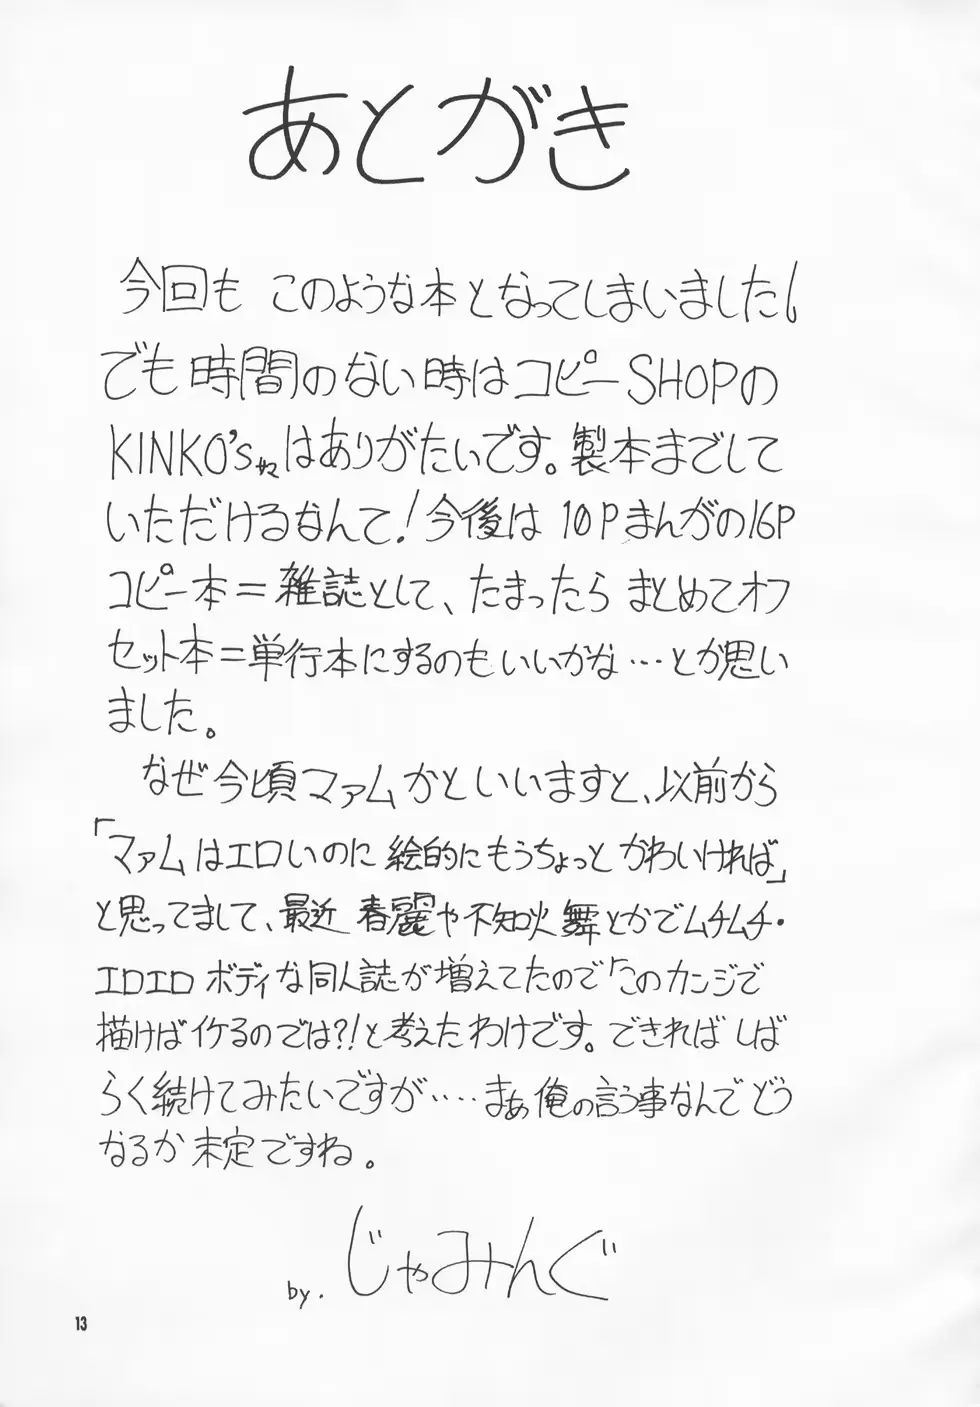 あとがき
今回も このような本となってしまいました!
でも時間のない時はコピーSHOPの
KINKO'sサマはありがたいです。製本までして
いただけるなんて!今後は 10Pまんがの16P
コピー本=雑誌として、たまったら まとめてオフ
セット本=単行本にするのもいいかな…とか思い
ました。
なぜ今頃マァムかといいますと、以前から
「マァムはエロいのに 絵的にもうちょっと かわいければ」
と思ってまして、最近 春麗や不知火舞とかでムチムチ・
エロエロ ボディな同人誌が増えてたので「このカンジで
描けばイケるのでは?!と考えたわけです。できれば しば
らく続けてみたいですが‥‥まぁ俺の言う事なんで どう
なるか 未定ですね。
by. じゃみんぐ
13